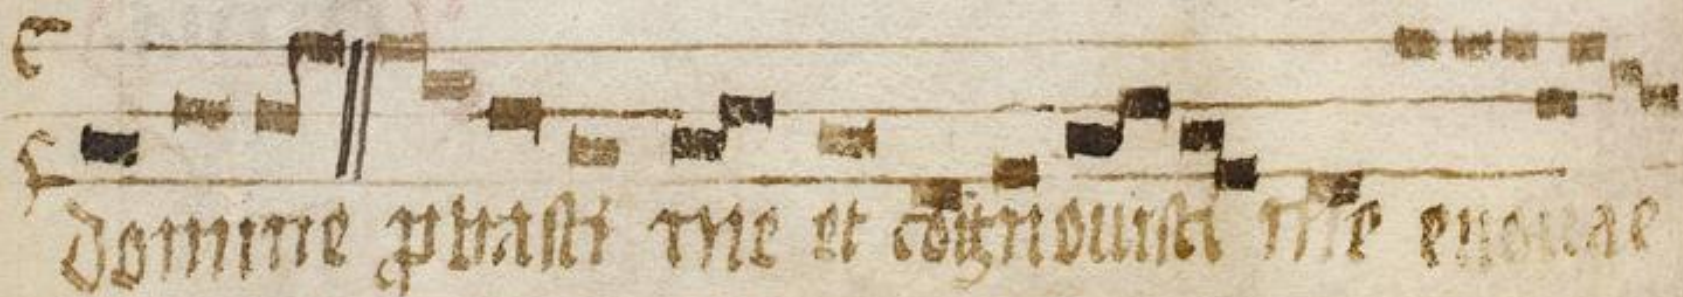 domine ꝓbasti me et cognouisti me euouae